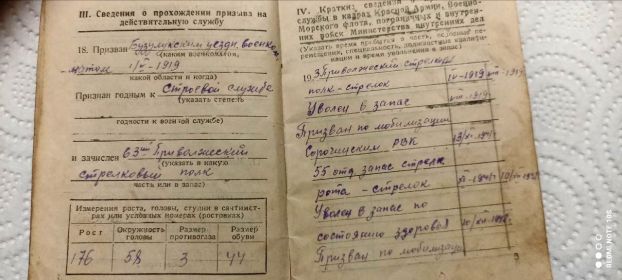 III. Сведения о прохождении призыва на
действительную службу
18. Призван Бузулукским уездн. военком
(каким военкоматом,
атом 1/IV - 1919
какой области и когда)
Признан годным к Строевой службе
(указать степень
годности к военной службе)
и зачислен 63ий Приволжский
(указать в какую
стрелковый полк
часть или в запас)
Измерения роста, головы, ступни в сантимет-
рах или условных номерах (ростовках)
Рост Окружность головы Размер противогаза Размер обуви
176 58 3 44
IV. Краткие сведения
службы в кадрах Красной Армии, Военно-
Морского флота, пограничных и внутрен-
них войск Министерства внутренних дел
(Указать время прибытия в часть,
перемещения, специальность,
и время увольнения в запас)
Приволжский
полк - стрелок IV-1919
Уволен в запас
Призван по мобилизации
Сорочинским РВК
55 отд. запас стрелк
рота - стрелок
Уволен в запас по
состоянию здоровья
Призван по мобилизации
3
REDMI NOTE